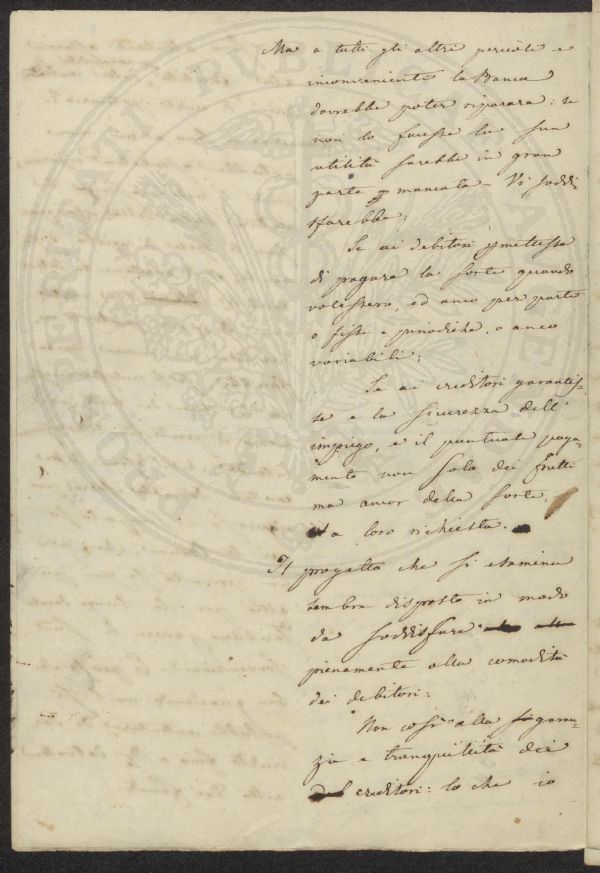 Ma a tutti gli altri pericoli e
inconvenienti la Banca
dovrebbe poter riparare: se
non lo facesse la sua
utilità sarebbe in gran
parte mancata – Vi soddi
sfarebbe:
Se ai debitori pmettesse
di pagare la sorte quando
volessero, ed anco per parte
o fisse e periodiche, o anco
variabili;
Se ai creditori garantis-
se e la sicurezza dell'
impiego, e il puntuale paga-
mento non solo dei frutti
ma ancor della sorte,
a loro richiesta.
Il progetto che si esamina
sembra disposto in modo
da soddisfare
pienamente alla comodità
dei debitori:
Non così alla garan-
zia e tranquillità dei
creditori: lo che io